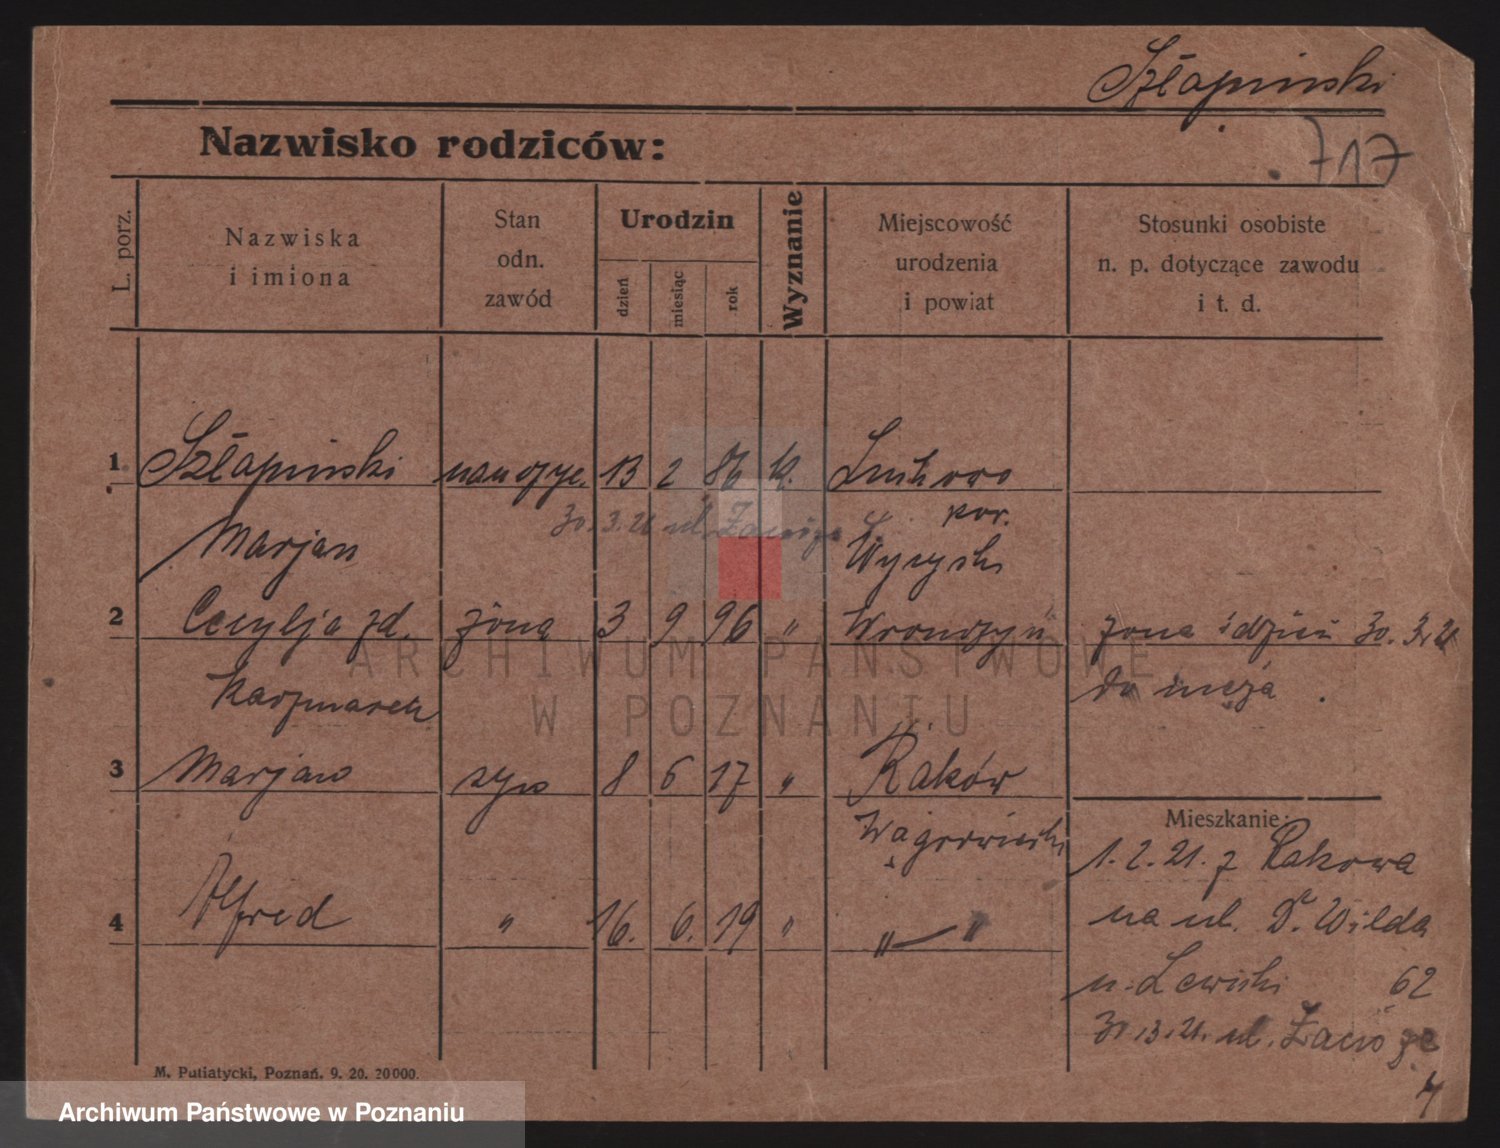 Szłapiński
717
Nazwisko rodziców:
L. porz.
Nazwiska
i imiona
Stan
odn.
zawód
Urodzin
dzień
miesiąc
rok
Wyznanie
Miejscowość
urodzenia
i powiat
Stosunki osobiste
n. p. dotyczące zawodu
i t. d.
1 Szłapiński 13 2 86 k.
pow.
30. 3. 21 ul.
Marjan
Wyrzysk
2 Cecylja zd. żona 3 9 96 " Wronczyn żona i dzieci 30. 3. 21
Kaczmarek
do męża
3 Marjan syn 8 6 17 " Raków
Wągrowiecki
Mieszkanie:
1. 2. 21. z Rakowa
4 Alfred " 16. 6. 19 " " — "
na ul. Dr. Wilda
62
30. 3. 21. ul.
4
M. Putiatycki, Poznań. 9. 20. 20000.
ARCHIWUM PAŃSTWOWE
W POZNANIU
Archiwum Państwowe w Poznaniu